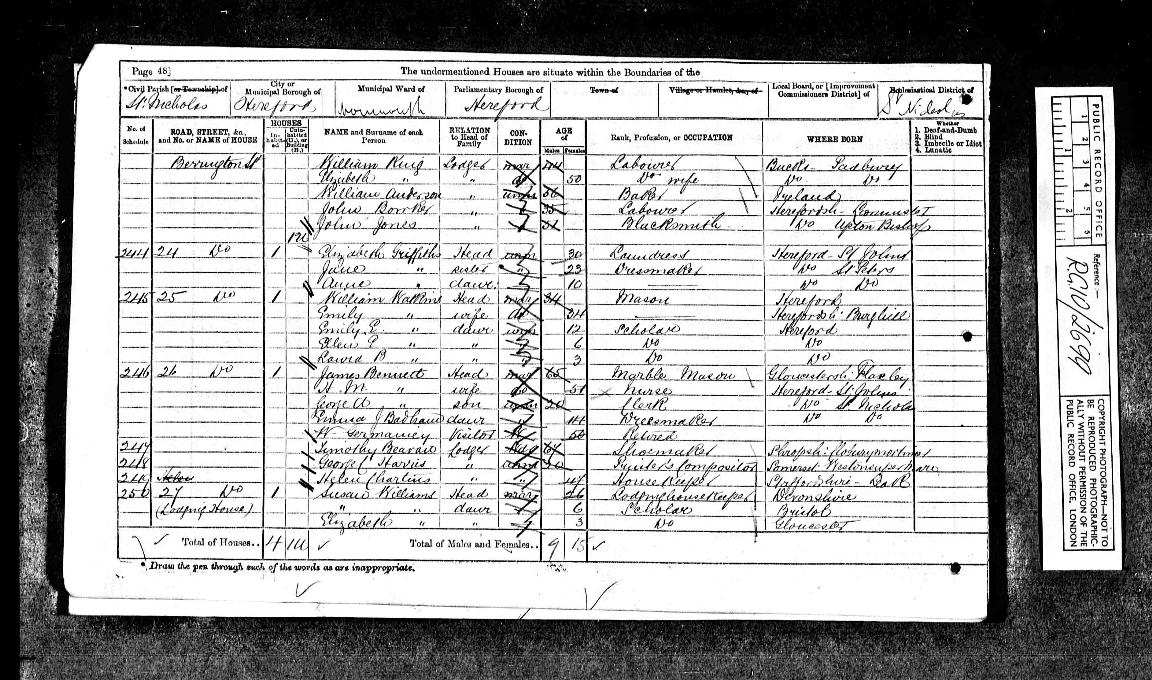 Page 48] The undermentioned Houses are situate within the Boundaries of the
*Civil Parish [or Township] of City or Municipal Borough of Municipal Ward of Parliamentary Borough of Town of Village or Hamlet, &c., of Local Board, or [Improvement Commissioners District] of Ecclesiastical District of
St. Nicholas Hereford Hereford St Nicholas
No. of Schedule ROAD, STREET, &c., and No. or NAME of HOUSE HOUSES Inhabited Uninhabited (U.), or Building (B.) NAME and Surname of each Person RELATION to Head of Family CONDITION AGE of Males Females Rank, Profession, or OCCUPATION WHERE BORN Whether 1. Deaf-and-Dumb 2. Blind 3. Imbecile or Idiot 4. Lunatic
Berrington St William King Lodger mar 44 Labourer Bucks -
Elizabeth " " 50 Do wife Do Do
William Anderson " unm Baker
John " Labourer Herefordsh -
John Jones " Blacksmith Do Upton Bishop
244 24 Do 1 Elizabeth Griffiths Head unm 30 Laundress Hereford - St Johns
Jane " sister " 23 Dressmaker Do St Peters
Annie " daur 10 Do Do
245 25 Do 1 William Watkins Head mar 34 Mason Hereford
Emily " wife do 34 Herefordsh: Burghill
Emily E. " daur 12 Scholar Hereford
Ellen E " " 6 Do Do
" " 3 Do Do
246 26 Do 1 James Bennett Head mar 65 Marble Mason Gloucestersh: Flaxley
A. M. " wife do 51 Nurse Hereford - St Johns
George A " son unm 20 Clerk Do St Nicholas
Emma J Badham daur " 14 Dressmaker Do Do
W Visitor Retired
247 Timothy Lodger Shoemaker Shropsh: Cleobury mortimer
248 George C Harris " Printer's Compositor Somerset Weston super mare
249 Helen " " House Keeper Staffordshire -
250 27 Do 1 Susan Williams Head mar 26 Lodging house Keeper Devonshire
(Lodging House) " " daur 6 Scholar Bristol
Elizabeth " " 3 Do Gloucester
Total of Houses.. 4 Total of Males and Females.. 9 15
*. Draw the pen through such of the words as are inappropriate.
PUBLIC RECORD OFFICE
1 2 3 4 5 6
1 2
Reference :-
RG10/2699
COPYRIGHT PHOTOGRAPH-NOT TO BE REPRODUCED PHOTOGRAPHICALLY WITHOUT PERMISSION OF THE PUBLIC RECORD OFFICE, LONDON